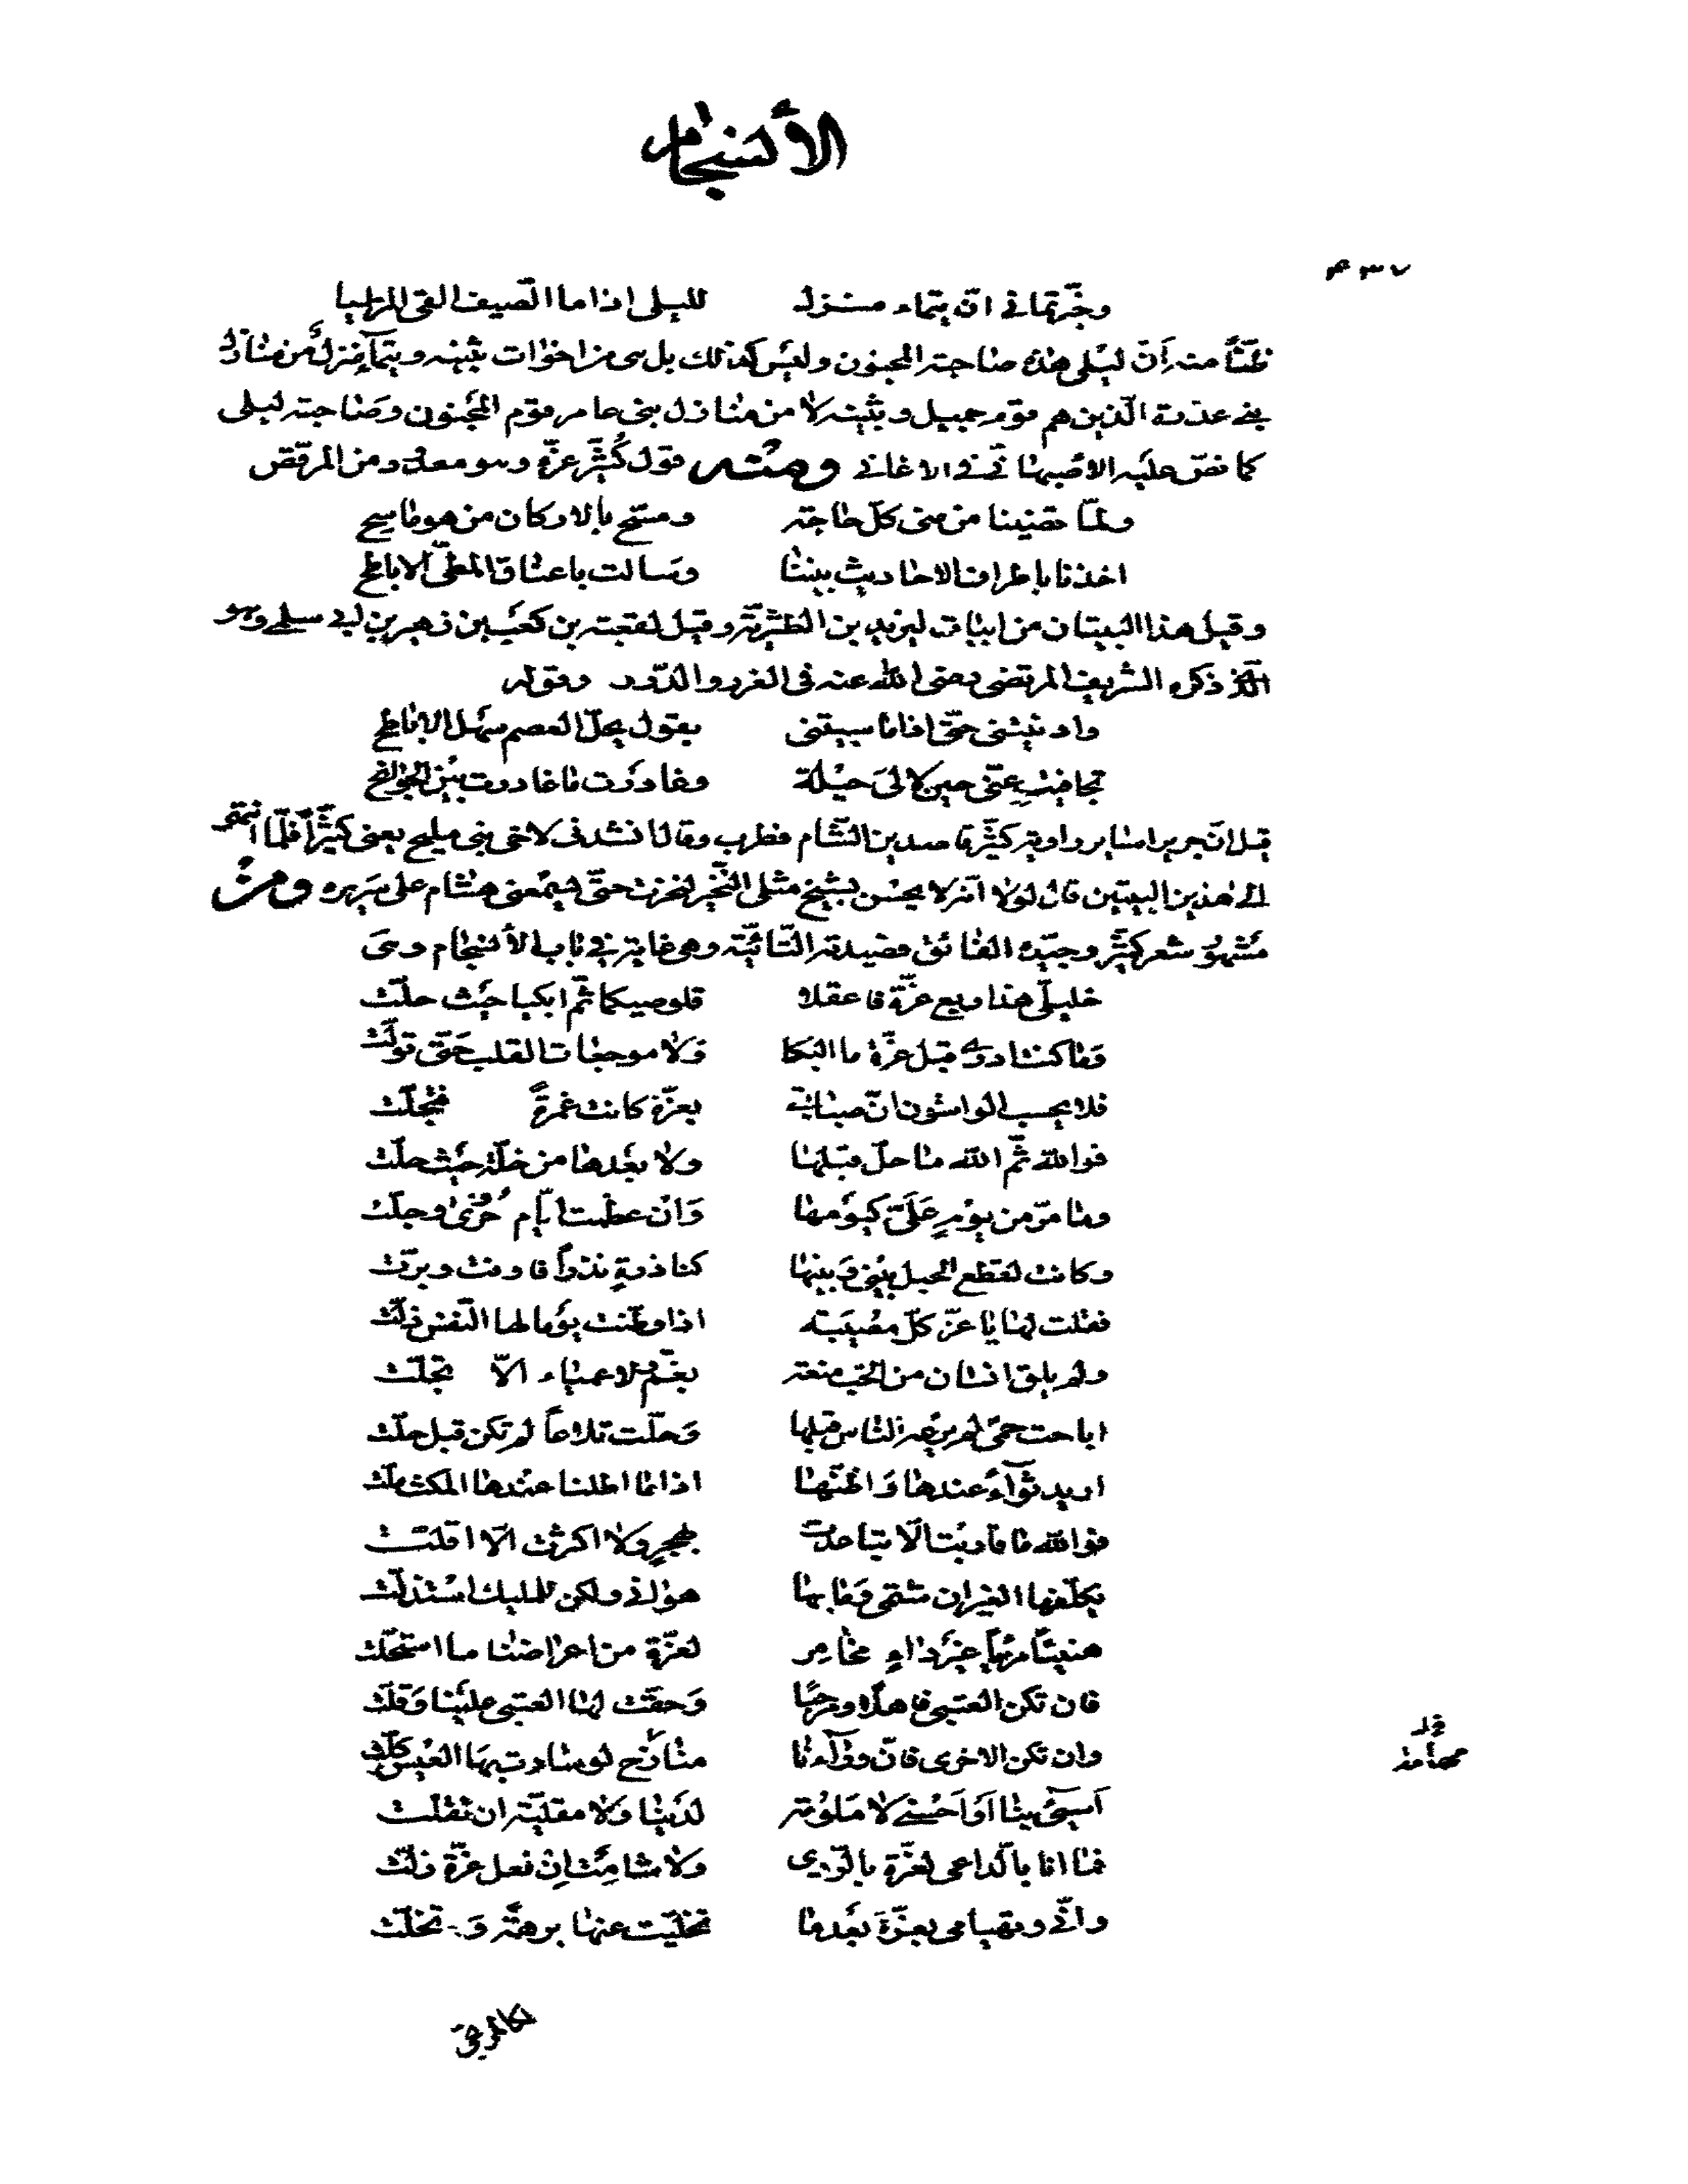 الأنسجام
٤٣٧
وخبّرتماني انّ تيماء منزل لليلى اذا ما الصيف القى المراسيا
ظنّاً منه أنّ ليلى هذه صاحبة المجنون وليس كذلك بل هى من اخوات بثينه وتيماء منزل من منازل
بني عذرة الّذين هم قوم جميل وبثينه لا من منازل بنى عامر قوم المجنون وصاحبته ليلى
كما نصّ عليه الاصبهانيّ في الاغاني ومنه قول كُثيّر عزّة وهو معدود من المرقص
ولمّا قضينا من منى كلّ حاجة ومسّح بالاركان من هو ماسح
اخذنا باطراف الاحاديث بيننا وسالت باعناق المطىّ الاباطح
وقيل هذا البيتان من ابيات ليزيد بن الطثريّة وقيل لعقبة بن كعب بن زهير بن ابي سلمى وهو
الّذي ذكره الشريف المرتضى رضى الله عنه فى الغرر والدّرر وقوله
وادنيتنى حتّى اذا ما سبيتنى بقول يحلّ العصم سهل الاباطح
تجافيتِ عنّى حين لا لىَ حيلة وغادرت ما غادرت بين الجوانح
قيل انّ جريرا ساير راوية كثيّر قاصدين الشّام فطرب وقال انشدنى لاخى بنى مليح يعنى كثيّراً فلمّا انتهى
الى هذين البيتين قال لولا انّه لا يحسن بشيخ مثلى النّخير لنخرت حتّى يسمعنى هشام على سريره ومن
مشهور شعر كثيّر وجيّده الفائق قصيدته التّائيّة وهى غاية في باب الأنسجام وهى
خليلىّ هذا ربع عزّة فاعقلا قلوصيكما ثمّ ابكيا حيث حلّت
وما كنت ادري قبل عزّة ما البكا ولا موجعات القلب حتّى تولّت
فلا يحسب الواشون انّ صبابتي بعزّة كانت غمرةً فتجلّت
فوالله ثمّ الله ما حلّ قبلها ولا بعدها من خلّة حيث حلّت
وما مرّ من يومٍ علىّ كيومها وان عظمت ايّام اخرى وجلّت
وكانت لقطع الحبل بيني وبينها كناذرةٍ نذراً فاوفت وبرّت
فقلت لها يا عزّ كلّ مصيبة اذا وطّنت يوما لها النّفس ذلّت
ولم يلق انسان من الحبّ منعة بغمّ ولا عمياء الّا تجلّت
اباحت حمىً لم يرعه النّاس قبلها وحلّت تلاعاً لم تكن قبل حلّت
اريد ثوآءً عندها واظنّها اذا ما اطلنا عندها المكث ملّت
فوالله ما قاربت الّا تباعدت بهجرٍ ولا اكثرت الّا اقلّت
يكلّفها الغيران شتمى وما بها هواني ولكن للمليك استذلّت
هنيئاً مريئاً غير داءٍ مخامر لعزّة من اعراضنا ما استحلّت
فان تكن العتبى فاهلا ومرحبا وحقّت لها العتبى علينا وقلّت
وان تكن الاخرى فانّ ورآءنا منادح لو سارت بها العيس كلّت
أسيئى بنا أو أحسنى لا ملومة لدينا ولا مقليّة ان تقلّت
فما انا بالدّاعى لعزّة بالرّدى ولا شامت ان نعل عزّة زلّت
وانّي وتهيامى بعزّة بعدما تخلّيت عنها برهة وتخلّت
لكالمرتجى